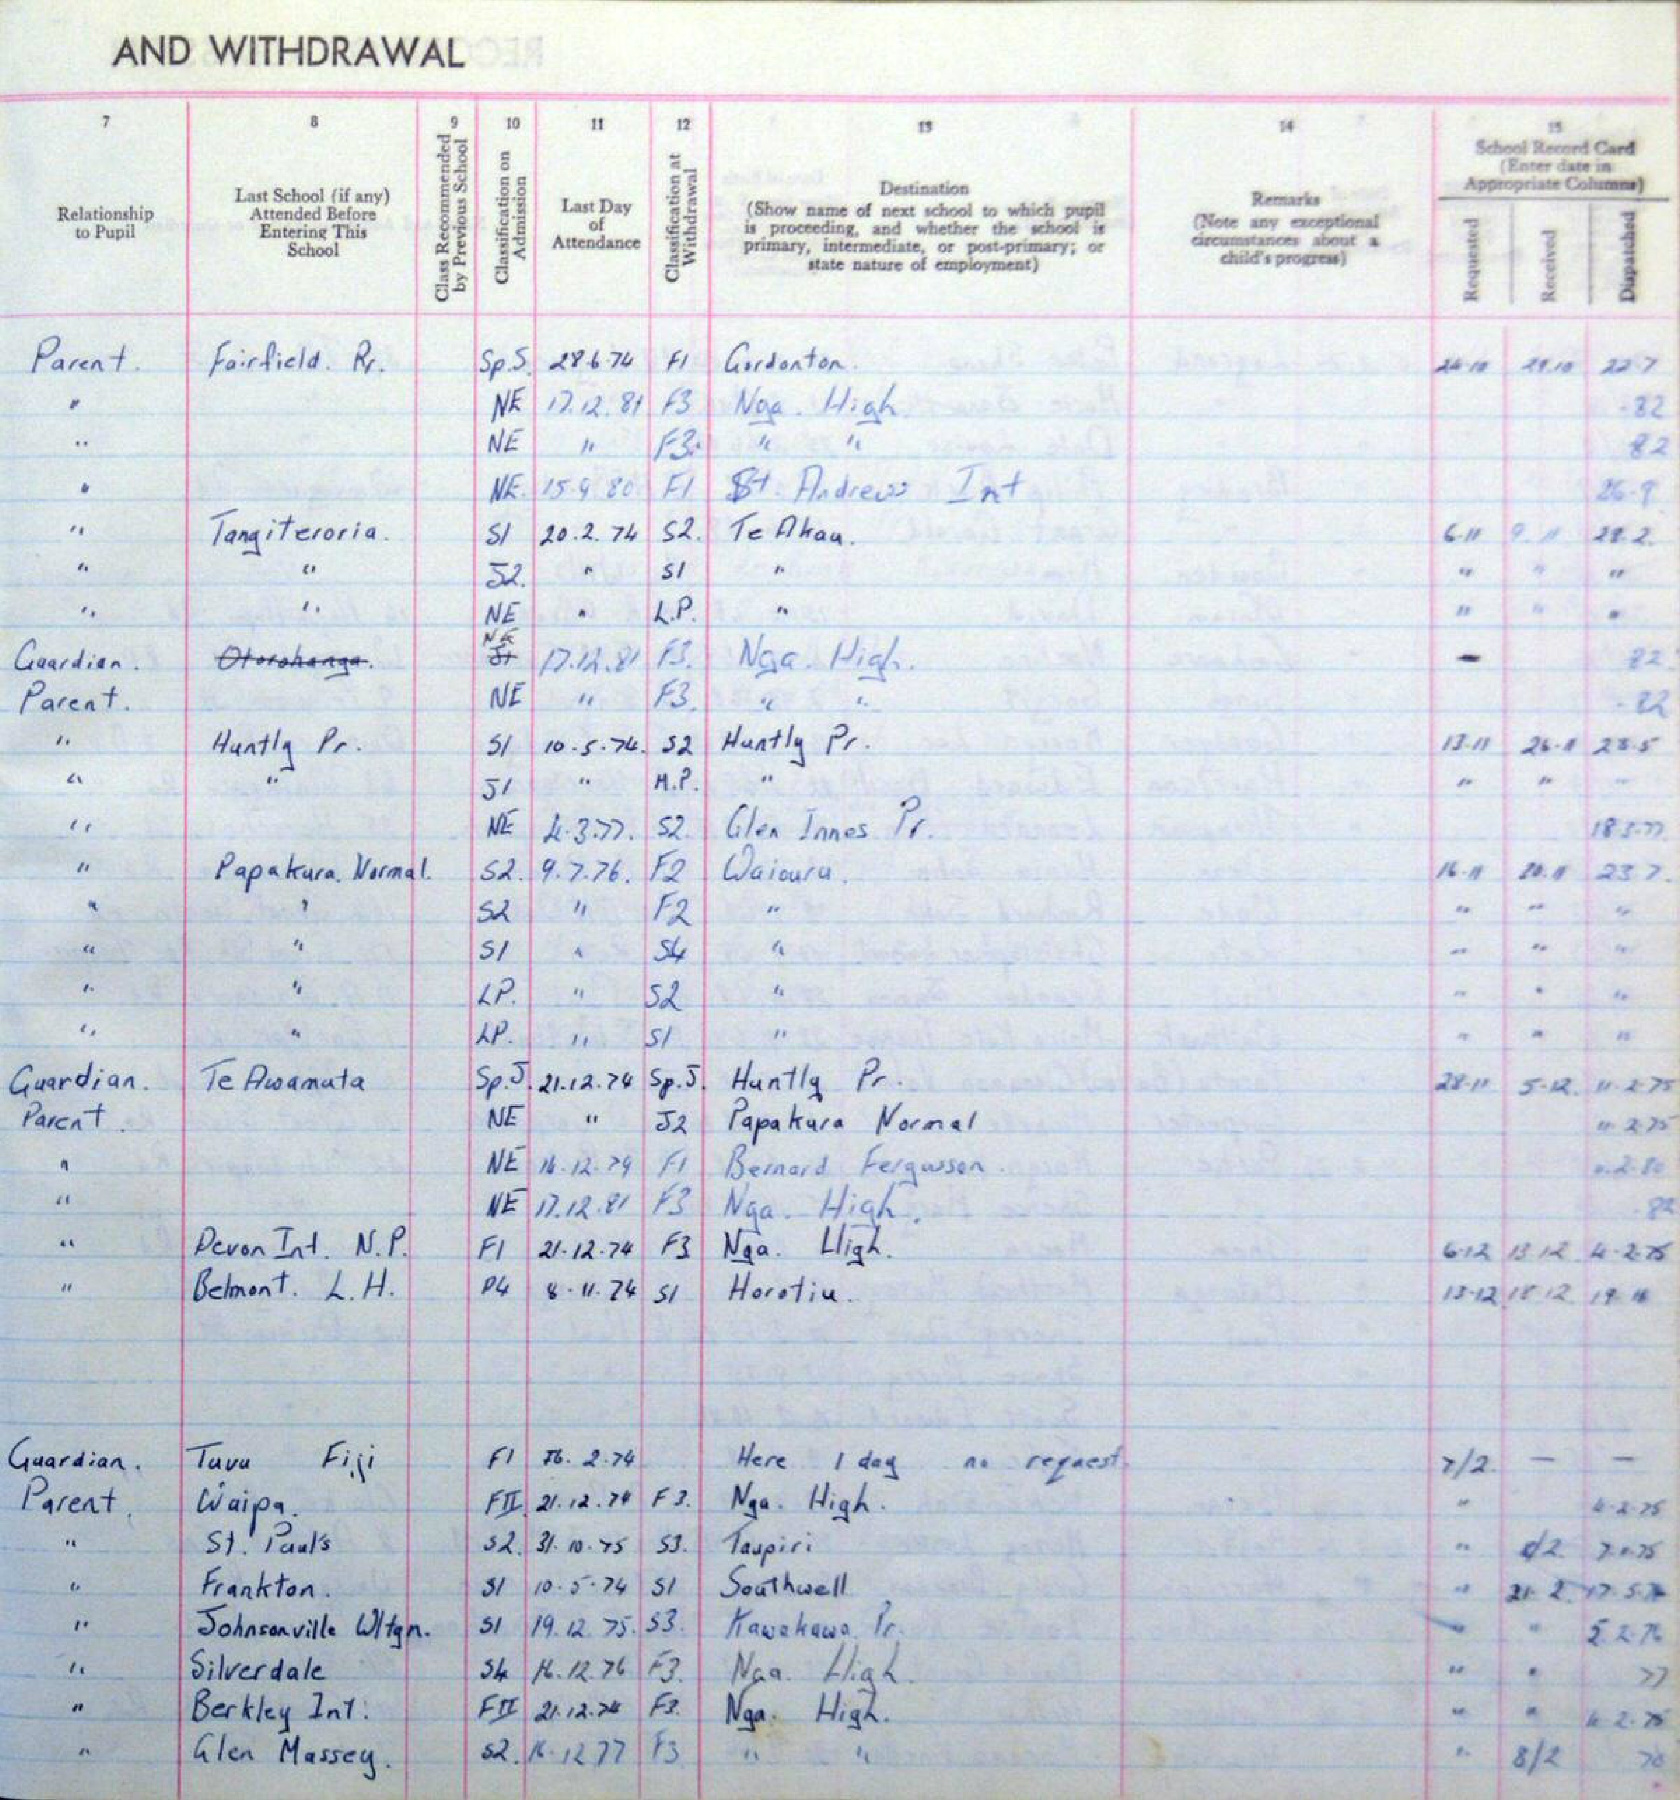 AND WITHDRAWAL
7 8 9 10 11 12 13 14 15
Relationship to Pupil
Last School (if any) Attended Before Entering This School
Class Recommended by Previous School
Classification on Admission
Last Day of Attendance
Classification at Withdrawal
Destination
(Show name of next school to which pupil is proceeding, and whether the school is primary, intermediate, or post-primary; or state nature of employment)
Remarks
(Note any exceptional circumstances about a child's progress)
School Record Card
(Enter date in Appropriate Columns)
Requested Received Dispatched
Parent. Fairfield. Pr. Sp.S. 28.6.74 F1 Gordonton. 24-10 29.10 22.7
" NE 17.12.81 F3 Nga. High -82
" NE " F3. " " 82
" NE. 15.9.80 F1 St. Andrews Int 26-9
" Tangiteroria. S1 20.2.74 S2. Te Akau. 6-11 9.11 28.2.
" " J2. " S1 " " " "
" " NE " L.P. " " " "
Guardian. Otorohanga. NE S1 17.12.81 F3. Nga. High. - 82
Parent. NE " F3. " " -82
" Huntly Pr. S1 10-5-74. S2 Huntly Pr. 13-11 26-11 28-5
" " J1 " M.P. " " " "
" NE 4.3.77. S2. Glen Innes Pr. 18.3.77
" Papakura. Normal. S2. 9.7.76. F2 Waiouru. 16-11 20.11 23.7.
" " S2 " F2 " " " "
" " S1 " S4 " " " "
" " LP. " S2 " " " "
" " LP. " S1 " " " "
Guardian. Te Awamuta Sp.J. 21.12.74 Sp.J. Huntly Pr. 28-11 5-12. 11-2-75
Parent. NE " J2 Papakura Normal 11-2-75
" NE 14.12.79 F1 Bernard Fergusson.
" NE 17.12.81 F3 Nga. High. -82
" Devon Int. N.P. F1 21-12-74 F3 Nga. High. 6-12 13.12 4-2-75
" Belmont. L.H. P4 8-11.74 S1 Horotiu. 13-12 18.12 19-11
Guardian. Tavu Fiji F1 2.74 Here 1 day no request. 7/2. — —
Parent. Waipa. FII 21.12.74 F3. Nga. High. " 4-2-75
" St. Paul's S2. 31.10.75 S3. Taupiri "
" Frankton. S1 10.5.74 S1 Southwell " 21.2. 17.5.74
" Johnsonville Wltgn. S1 19.12.75. S3. Kawakawa Pr. " " 5.2.76
" Silverdale S4 16.12.76 F3. Nga. High. " " 77
" Berkley Int: FII 21.12.74 F3. Nga. High. " " 4-2-75
" Glen Massey. S2. 16.12.77 F3 " " " 8/2 78